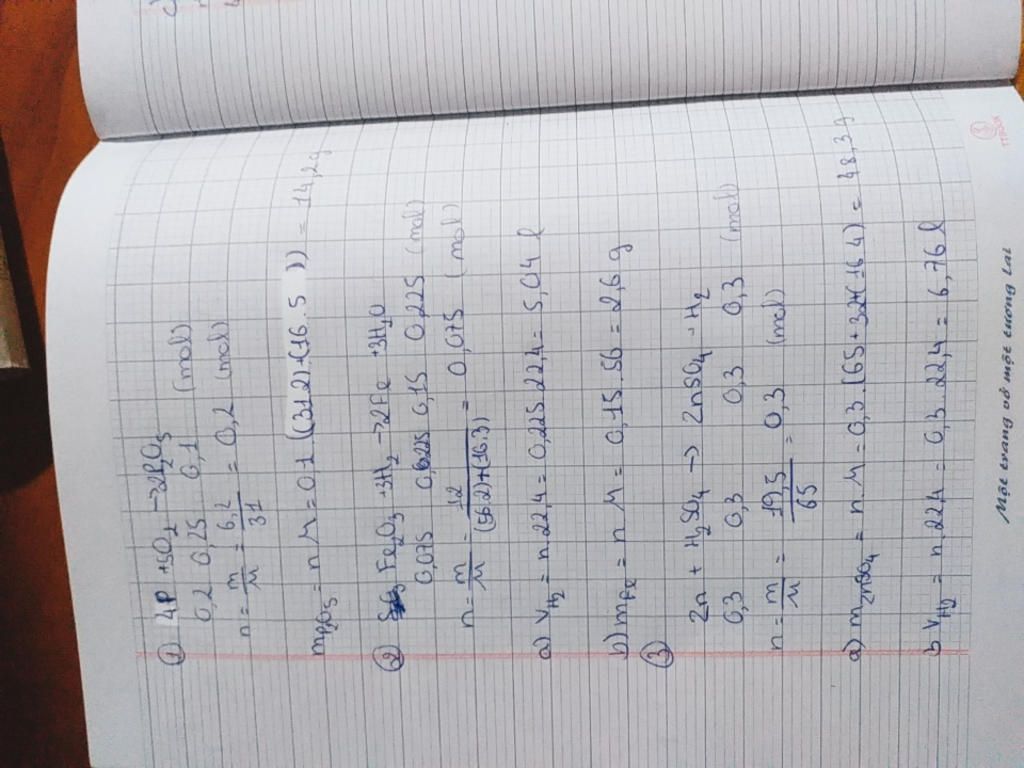 ① 4P + 5O2 → 2P2O5
0,2 0,25 0,1 (mol)
n = m/M = 6,2/31 = 0,2 (mol)
mP2O5 = n M = 0.1 ((31.2)+(16.5)) = 14,2 g
② Fe2O3 + 3H2 → 2Fe + 3H2O
0,075 0,225 0,15 0.225 (mol)
n = m/M = 12/((56.2)+(16.3)) = 0,075 (mol)
a) VH2 = n.22,4 = 0,225.22,4 = 5,04 l
b) mFe = n M = 0,15.56 = 2,6 g
③
Zn + H2SO4 → ZnSO4 + H2
0,3 0,3 0,3 0,3 (mol)
n = m/M = 19,5/65 = 0,3 (mol)
a) mZnSO4 = n M = 0,3. (65+32+(16 4) = 48,3 g
b VH2 = n.22,4 = 0,3.22,4 = 6,76 l
Một trang vở một tương lai